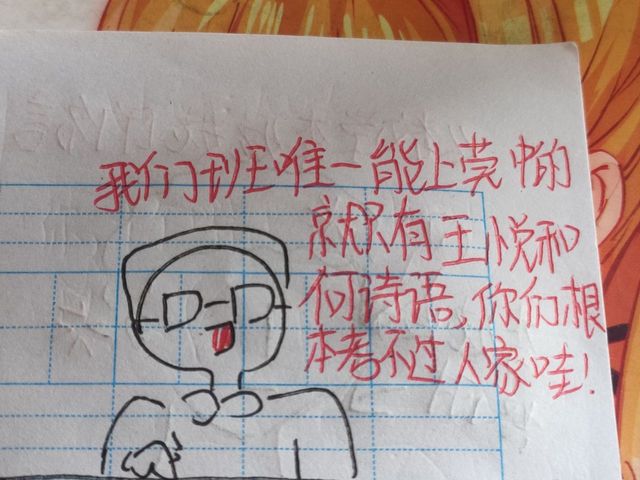 我们班唯一能上莞中的
就只有王悦和
何诗语,你们根
本考不过人家哇!